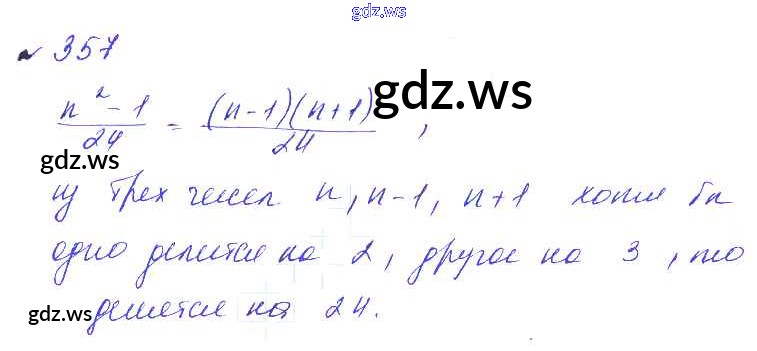 gdz.ws
№ 357
(n² - 1)/24 = (n-1)(n+1)/24 ,
gdz.ws
gdz.ws
из трех чисел n, n-1, n+1 хотя бы
одно делится на 2, другое на 3, то
gdz.ws делится на 24.